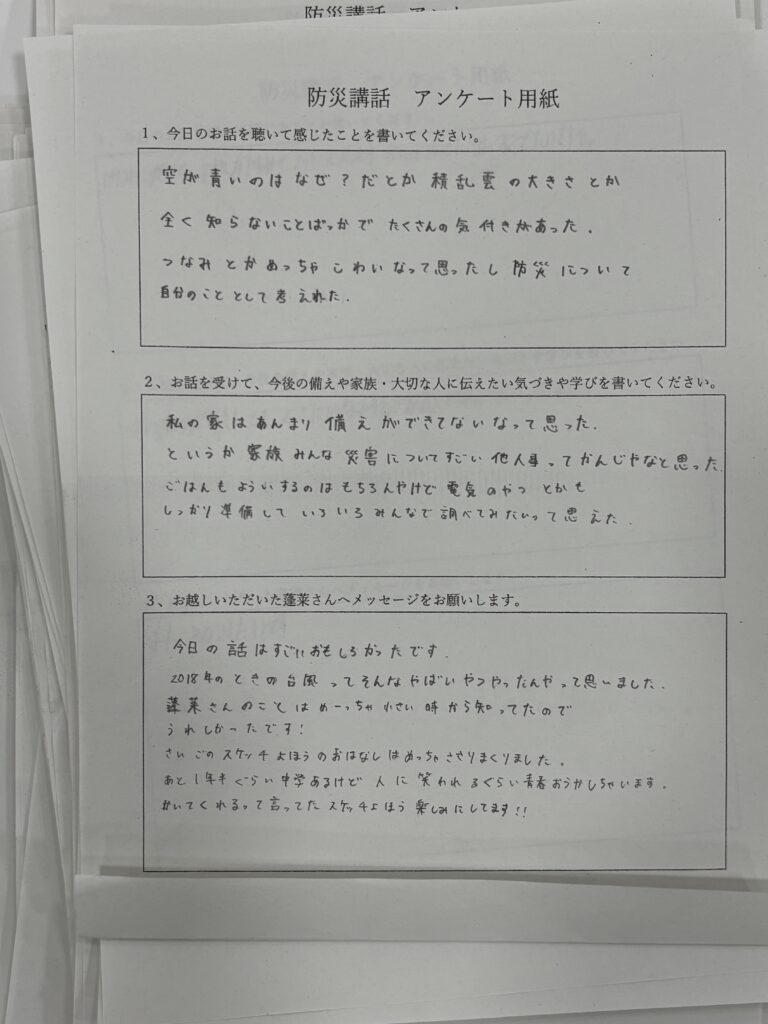 防災講話 アンケート用紙
1、今日のお話を聴いて感じたことを書いてください。
空が青いのはなぜ？だとか 積乱雲の大きさとか
全く知らないことばっかで たくさんの気付きがあった。
つなみとかめっちゃ こわいなって思ったし 防災について
自分のこととして考えれた。
2、お話を受けて、今後の備えや家族・大切な人に伝えたい気づきや学びを書いてください。
私の家はあんまり 備えができてないなって思った。
というか 家族みんな 災害についてすごい 他人事ってかんじやなと思った。
ごはんもよういするのはもちろんやけど 電気のやつ とかも
しっかり準備して いろいろみんなで調べてみたいって思えた。
3、お越しいただいた蓬莱さんへメッセージをお願いします。
今日の話はすごいおもしろかったです。
2018年のときの台風ってそんなやばいやつやったんやって思いました。
蓬莱さんのことは めーっちゃ小さい時から知ってたので
うれしかったです！
さいごのスケッチよほうのおはなしはめっちゃささりまくりました。
あと1年半ぐらい中学あるけど 人に笑われるぐらい青春おうかしちゃいます。
かいてくれるって言ってた スケッチよほう 楽しみにしてます!!